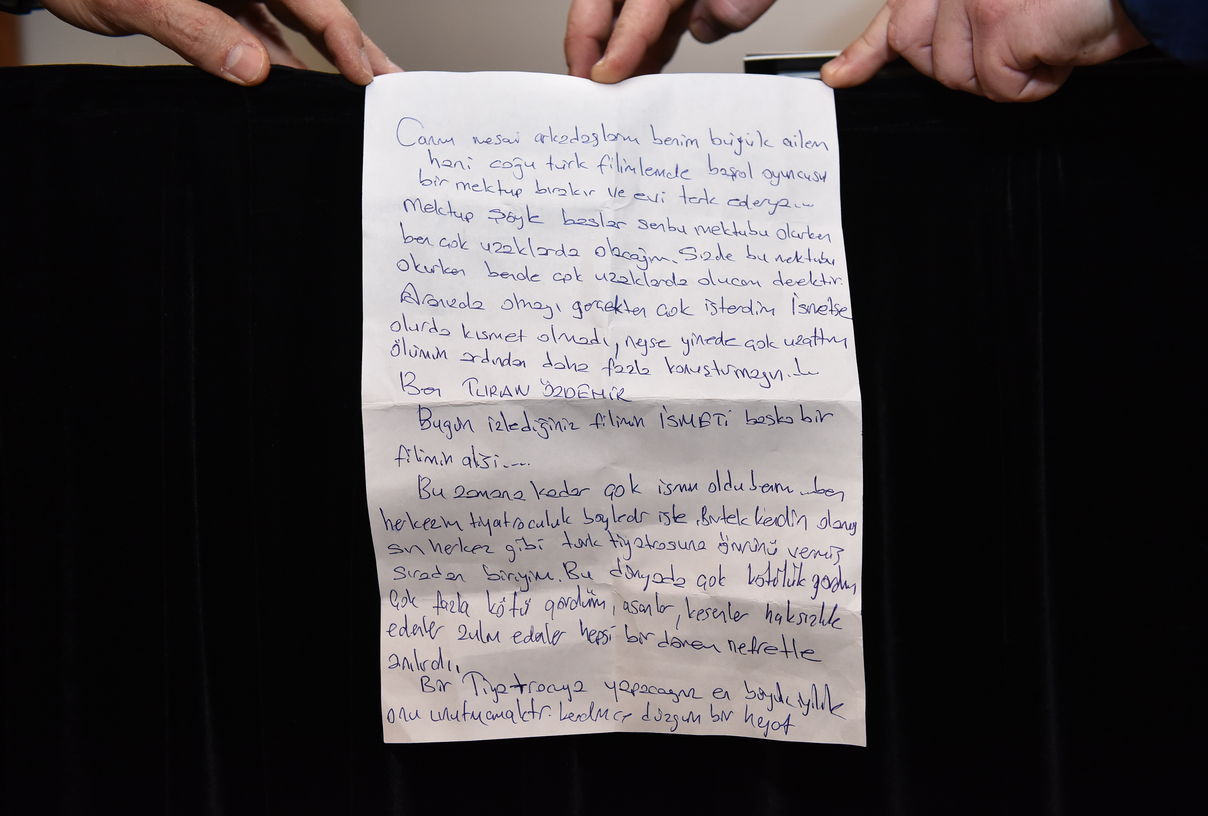 Canım mesai arkadaşlarım benim büyük ailem
hani çoğu türk filimlernde başrol oyuncusu
bir mektup bırakır ve evi terk ederya...
mektup şöyle başlar sen bu mektubu okurken
ben çok uzaklarda olacağım. Sizde bu mektubu
okurken bende çok uzaklarda olucam demektir.
Aranızda olmayı gerçekten çok isterdim
olurda kısmet olmadı, neyse yinede çok uzattım
ölünün ardından daha fazla konuşturmayın...
Ben TURAN ÖZDEMİR
Bugün izlediğiniz filimin İSMETİ başka bir
filimin
Bu zamana kadar çok ismim oldu benim ...ben
herkezim tiyatroculuk böyledir işte. Birtek kendin olamıy
sın herkez gibi türk tiyatrosuna ömrünü vermiş
sıradan biriyim. Bu dünyada çok kötülük gördüm
Çok fazla kötü gördüm, asanlar, kesenler haksızlık
edenler zulm edenler hepsi bir dönem nefretle
anılırdı.
Bir Tiyatrocuya yapacağınız en büyük iyilik
onu unutmamaktır. kendimce düzgün bir hayat